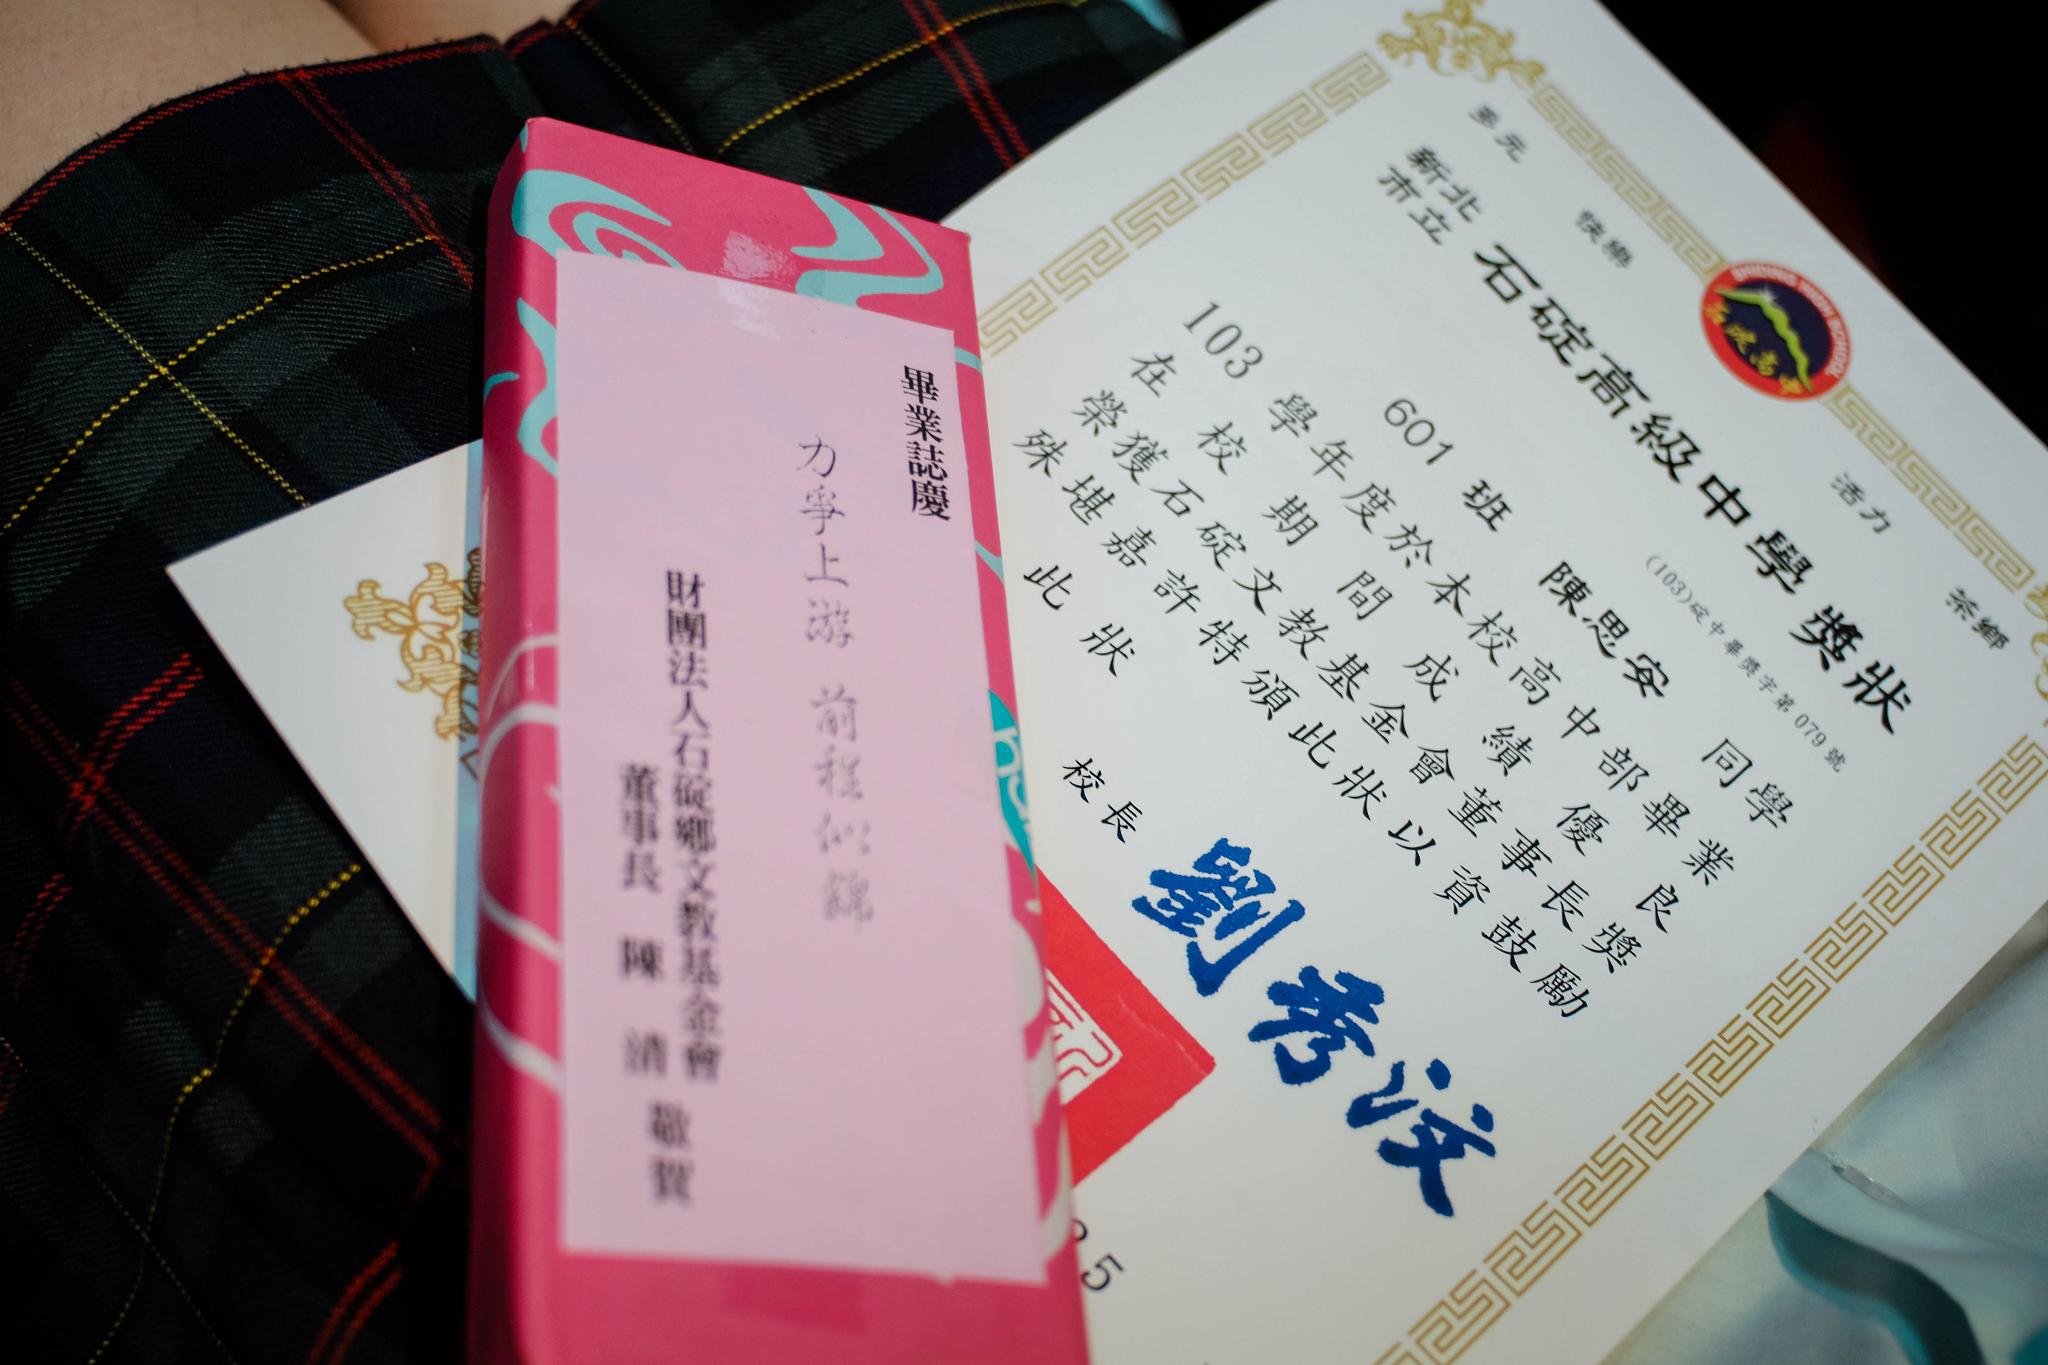 多元 快樂 活力 茶鄉
SHIDING HIGH SCHOOL
石碇高中
新北市立石碇高級中學獎狀
(103)碇中畢獎字第079號
601班 陳思安 同學
103學年度於本校高中部畢業
在校期間成績優良
榮獲石碇文教基金會董事長獎
殊堪嘉許特頒此狀以資鼓勵
此狀
校長 劉秀汶
25
畢業誌慶
力爭上游 前程似錦
財團法人石碇鄉文教基金會
董事長 陳 清 敬賀